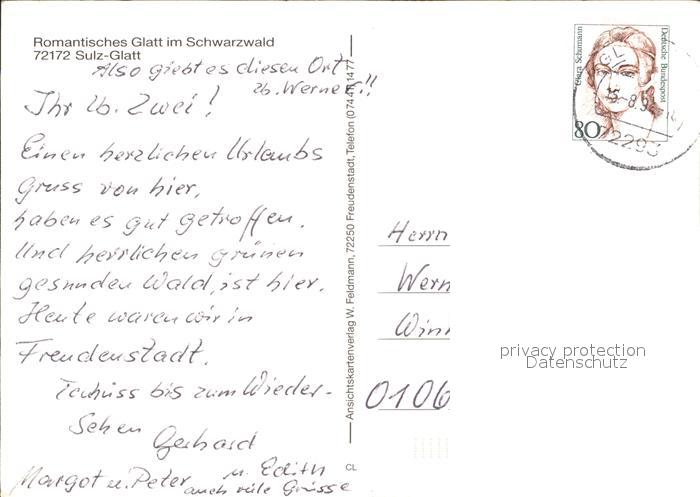 Romantisches Glatt im Schwarzwald
72172 Sulz-Glatt
Also giebt es diesen Ort
lb. Werner!!
Ihr lb. Zwei!
Einen herzlichen Urlaubs
gruss von hier,
haben es gut getroffen.
Und herrlichen grünen
gesunden Wald, ist hier.
Heute waren wir in
Freudenstadt.
Tschüss bis zum Wieder-
sehen
Gerhard
Margot u. Peter
u. Edith
auch viele Grüsse
Ansichtskartenverlag W. Feldmann, 72250 Freudenstadt, Telefon (07441) 1477
CL
Clara Schumann
Deutsche Bundespost
80
72293
Herrn
Wern
Win
0106
privacy protection
Datenschutz